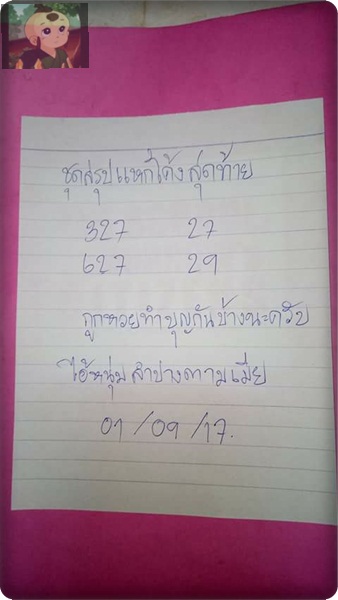 ชุดสรุปแหกโค้งสุดท้าย
327 27
627 29
ถูกหวยทำบุญกันบ้างนะครับ
ไอ้หนุ่มลำปางตามเมีย
01/09/17.